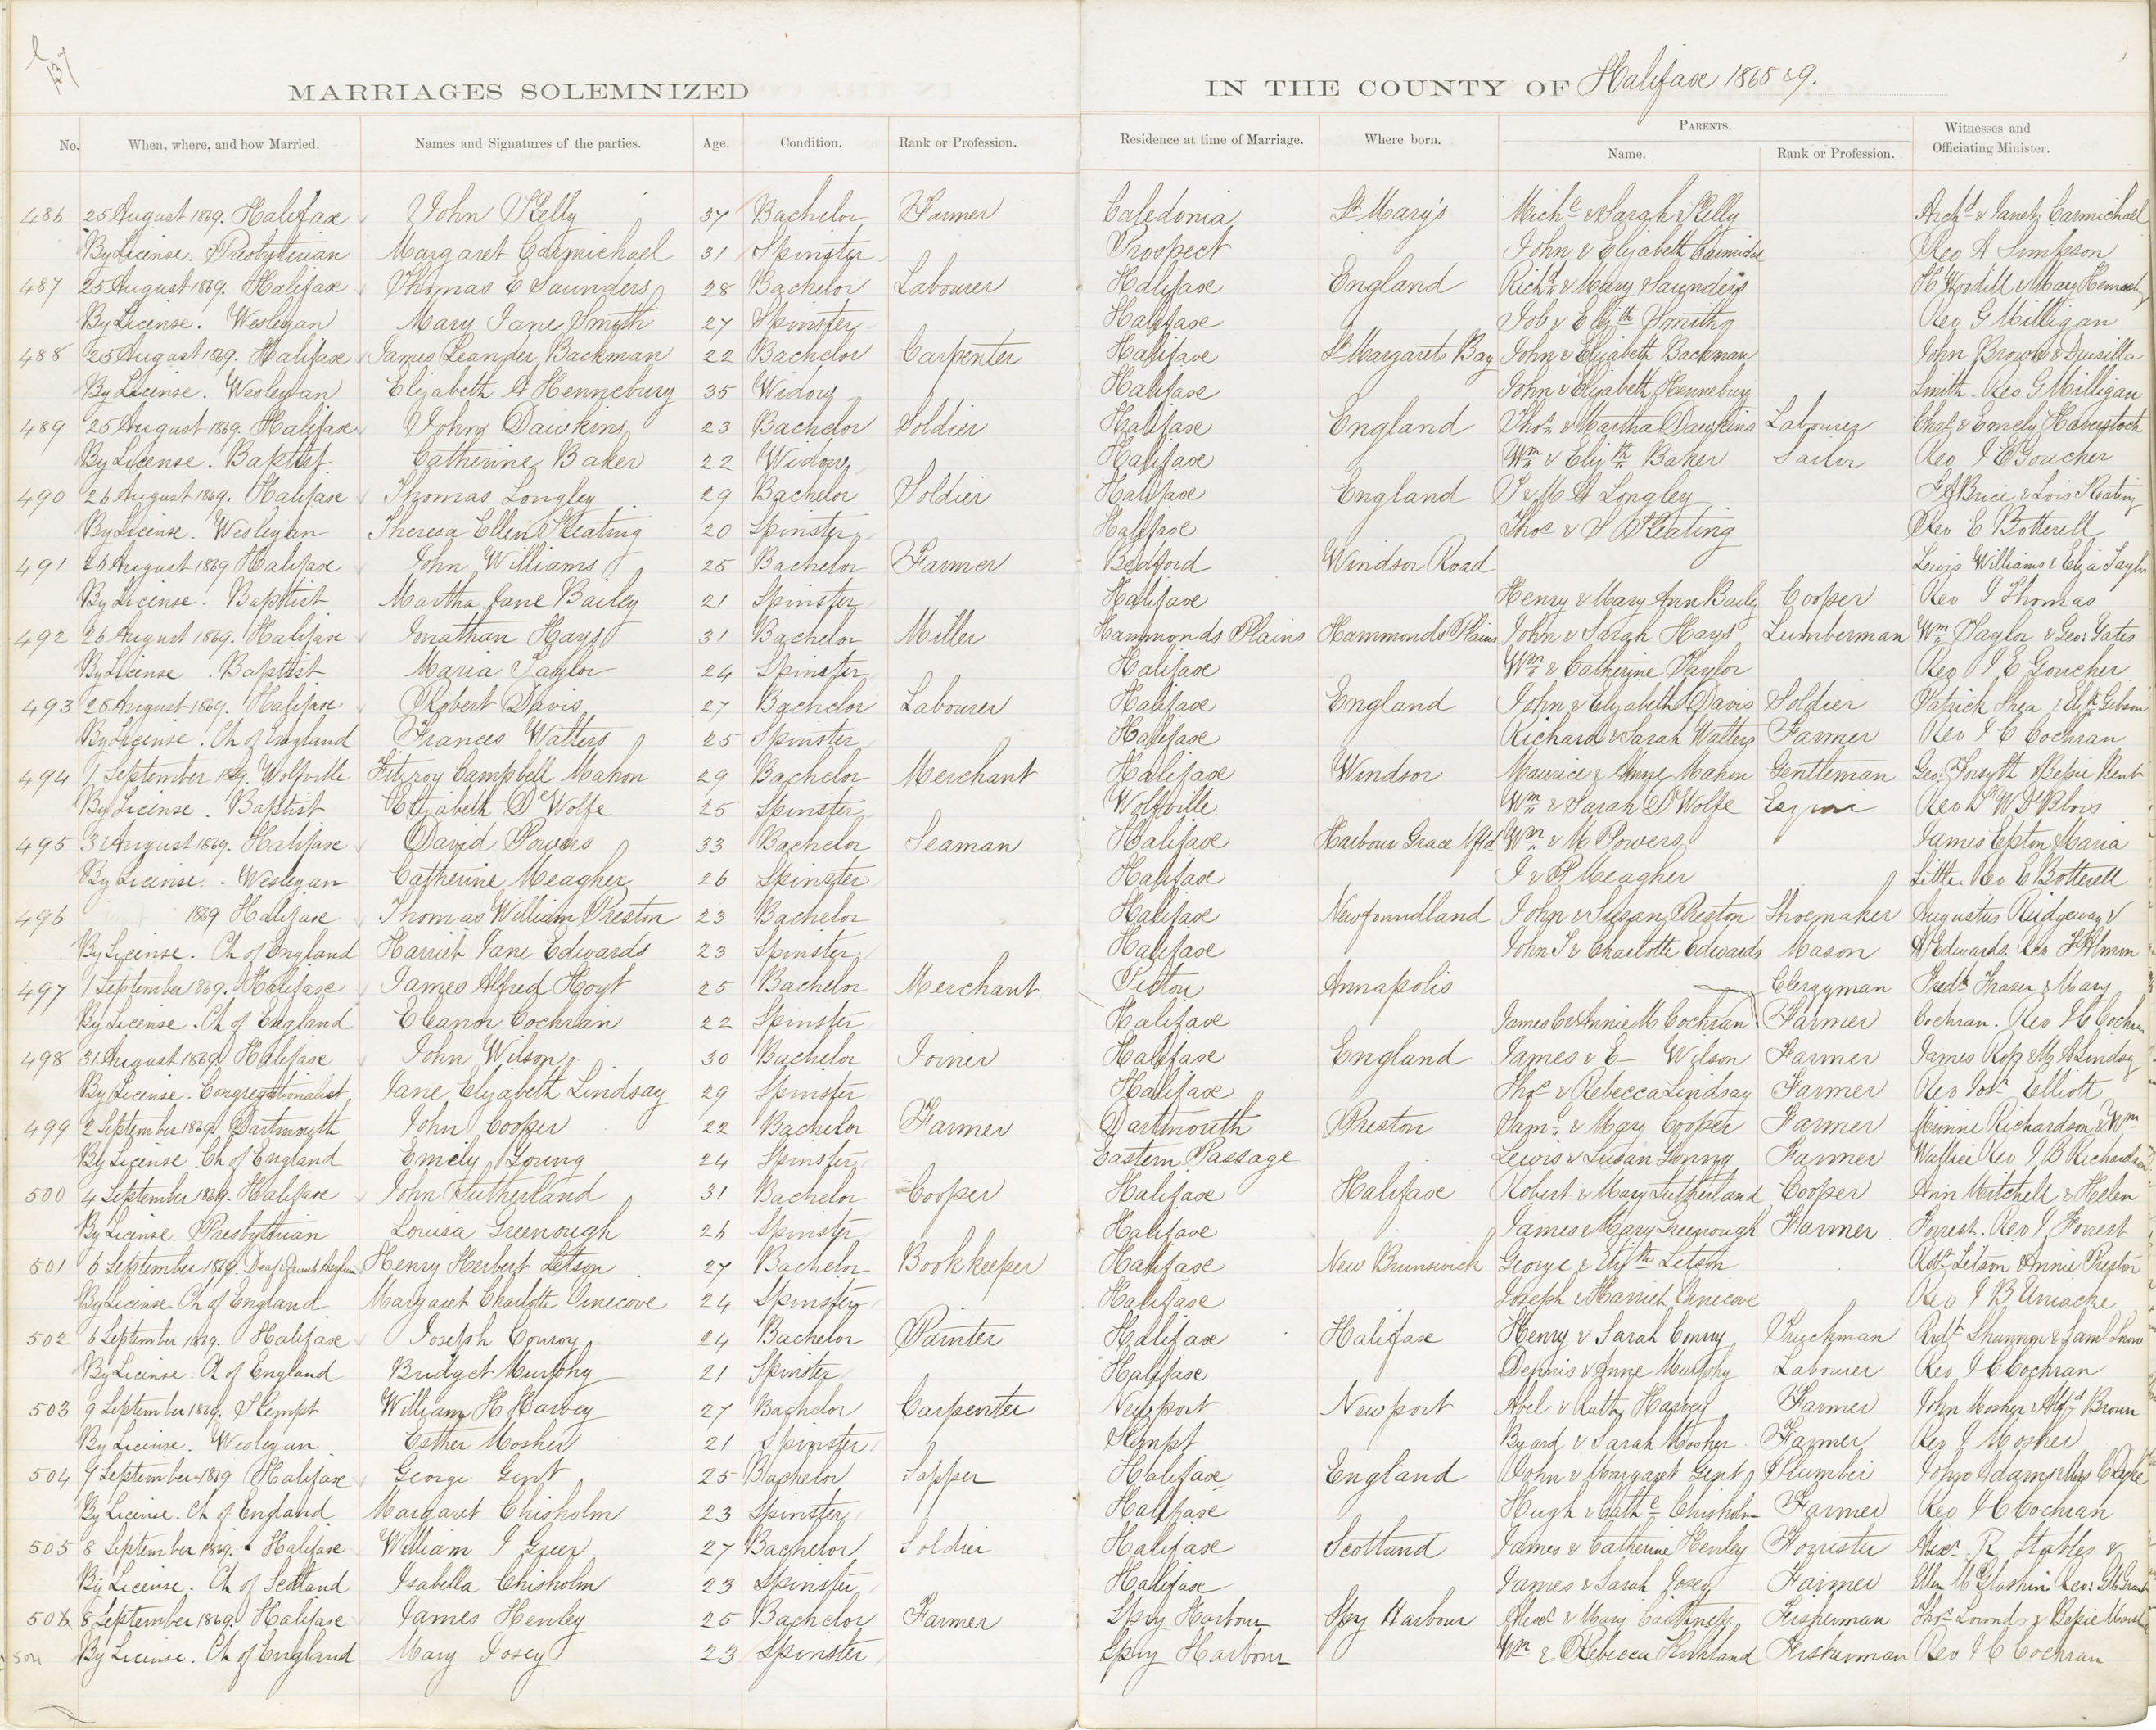 137
MARRIAGES SOLEMNIZED IN THE COUNTY OF Halifax 1868 & 9.
No. When, where, and how Married. Names and Signatures of the parties. Age. Condition. Rank or Profession. Residence at time of Marriage. Where born. PARENTS. Name. Rank or Profession. Witnesses and Officiating Minister.
486 25 August 1869. Halifax John Kelly 37 Bachelor Farmer Caledonia St Mary's Michl & Sarah Kelly Archd & Janet Carmichael
By License. Presbyterian Margaret Carmichael 31 Spinster Prospect John & Elizabeth Carmichael Rev A Simpson
487 25 August 1869. Halifax Thomas E Saunders 28 Bachelor Labourer Halifax England Richd & Mary Saunders H Wodill & Mary
By License. Wesleyan Mary Jane Smith 27 Spinster Halifax Job & Elizth Smith Rev G Milligan
488 25 August 1869. Halifax James Leander Backman 22 Bachelor Carpenter Halifax St Margarets Bay John & Elizabeth Backman John Brown & Drusilla
By License. Wesleyan Elizabeth A Hennebury 35 Widow Halifax John & Elizabeth Hennebury Smith. Rev G Milligan
489 25 August 1869. Halifax John Dawkins 23 Bachelor Soldier Halifax England Thos & Martha Dawkins Labourer Chas & Emely Haverstock
By License. Baptist Catherine Baker 22 Widow Halifax Wm & Elizth Baker Sailor Rev J E Goucher
490 26 August 1869. Halifax Thomas Longley 29 Bachelor Soldier Halifax England T & M A Longley Brice & Lois Keating
By License. Wesleyan Theresa Ellen Keating 20 Spinster Halifax Thos & S Keating Rev E Botterell
491 26 August 1869 Halifax John Williams 25 Bachelor Farmer Bedford Windsor Road Lewis Williams & Eliza Taylor
By License. Baptist Martha Jane Bailey 21 Spinster Halifax Henry & Mary Ann Baily Cooper Rev J Thomas
492 26 August 1869. Halifax Jonathan Hays 31 Bachelor Miller Hammonds Plains Hammonds Plains John & Sarah Hays Lumberman Wm Taylor & Geo: Gates
By License. Baptist Maria Taylor 24 Spinster Halifax Wm & Catherine Taylor Rev J E Goucher
493 28 August 1869. Halifax Robert Davis 27 Bachelor Labourer Halifax England John & Elizabeth Davis Soldier Patrick Shea & Elizth Gibson
By License. Ch of England Frances Watters 25 Spinster Halifax Richard & Sarah Watters Farmer Rev J C Cochran
494 1 September 1869. Wolfville Fitzroy Campbell Mahon 29 Bachelor Merchant Halifax Windsor Maurice & Anne Mahon Gentleman Geo: Forsyth & Bessie Bent
By License. Baptist Elizabeth DeWolfe 25 Spinster Wolfville Wm & Sarah DeWolfe Esquire Rev S W DeBlois
495 31 August 1869. Halifax David Powers 33 Bachelor Seaman Halifax Harbour Grace Nfld Wm & M Powers James Epton Maria
By License. Wesleyan Catherine Meagher 26 Spinster Halifax J & P Meagher Little Rev E Botterell
496 1869 Halifax Thomas William Preston 23 Bachelor Halifax Newfoundland John & Susan Preston Shoemaker Augustus Ridgeway &
By License. Ch of England Harriet Jane Edwards 23 Spinster Halifax John T & Charlotte Edwards Mason Edwards. Rev Almon
497 1 September 1869. Halifax James Alfred Hoyt 25 Bachelor Merchant Pictou Annapolis Clergyman Fredk Fraser & Mary
By License. Ch of England Eleanor Cochran 22 Spinster Halifax James C & Annie M Cochran Farmer Cochran. Rev J C Cochran
498 31 August 1869 Halifax John Wilson 30 Bachelor Joiner Halifax England James & E Wilson Farmer James Ross & M A Lindsay
By License. Congregationalist Jane Elizabeth Lindsay 29 Spinster Halifax Thos & Rebecca Lindsay Farmer Rev Elliott
499 2 September 1869. Dartmouth John Cooper 22 Bachelor Farmer Dartmouth Preston Saml & Mary Cooper Farmer Minnie Richardson & Wm
By License Ch of England Emely Young 24 Spinster Eastern Passage Lewis & Susan Young Farmer Rev J B Richardson
500 4 September 1869. Halifax John Sutherland 31 Bachelor Cooper Halifax Halifax Robert & Mary Sutherland Cooper Ann Mitchell & Helen
By License. Presbyterian Louisa Greenough 26 Spinster Halifax James & Mary Greenough Farmer Forrest. Rev J Forrest
501 6 September 1869. Deaf & Dumb Asylum Henry Herbert Letson 27 Bachelor Bookkeeper Halifax New Brunswick George & Elizth Letson Robt Letson & Annie Preston
By License. Ch of England Margaret Charlotte Vinecove 24 Spinster Halifax Joseph & Harriet Vinecove Rev J B Uniacke
502 6 September 1869. Halifax Joseph Conroy 24 Bachelor Painter Halifax Halifax Henry & Sarah Conroy Truckman Robt Shannon & Saml Snow
By License. Ch of England Bridget Murphy 21 Spinster Halifax Dennis & Anne Murphy Labourer Rev J C Cochran
503 9 September 1869. Kempt William H Harvey 27 Bachelor Carpenter Newport Newport Abel & Ruth Harvey Farmer John Mosher & Alfd Brown
By License. Wesleyan Esther Mosher 21 Spinster Kempt Byard & Sarah Mosher Farmer Rev J Mosher
504 9 September 1869 Halifax George Gent 25 Bachelor Sapper Halifax England John & Margaret Gent Plumber John Adams & Mrs
By License. Ch of England Margaret Chisholm 23 Spinster Halifax Hugh & Cathe Chisholm Farmer Rev J C Cochran
505 8 September 1869. Halifax William J Greer 27 Bachelor Soldier Halifax Scotland James & Catherine Henley Forrester Alexr R Stables &
By License. Ch of Scotland Isabella Chisholm 23 Spinster Halifax James & Sarah Josey Farmer Ellen McGlashin Rev: G M Grant
506 8 September 1869. Halifax James Henley 25 Bachelor Farmer Spry Harbour Spy Harbour Alexr & Mary Fisherman Thos Lownds & Bessie
504 By License. Ch of England Mary Josey 23 Spinster Spry Harbour Wm & Rebecca Kirkland Fisherman Rev J C Cochran